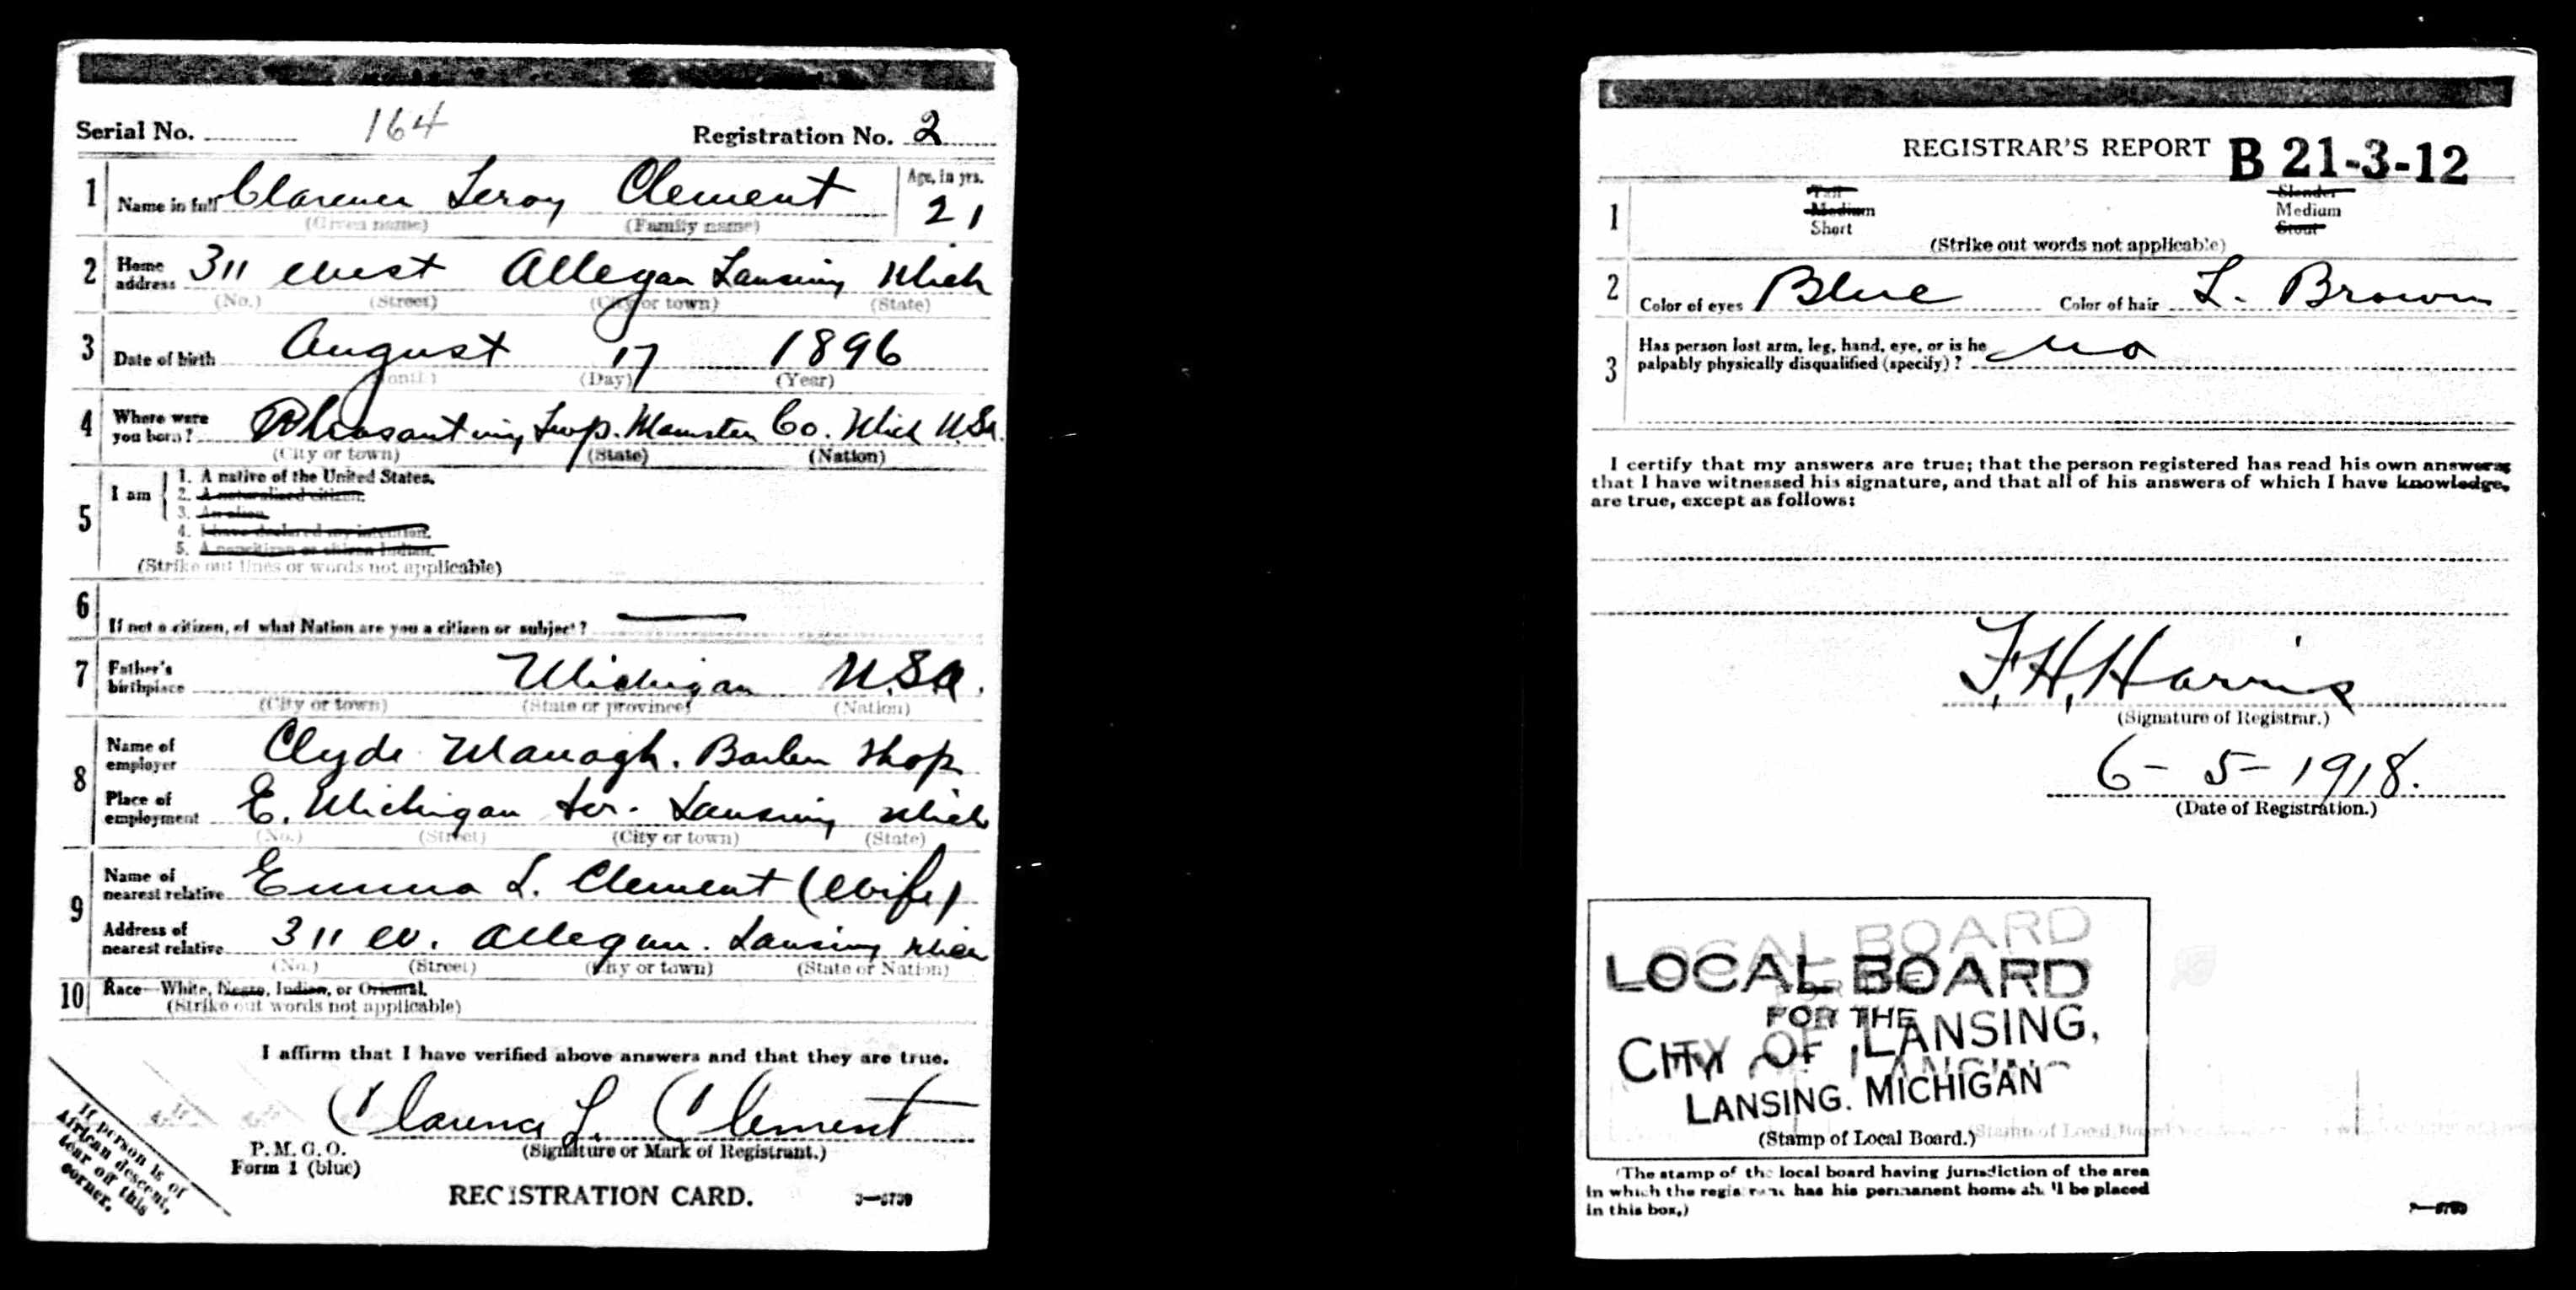 Serial No. 164 Registration No. 2
1 Name in full Clarence Leroy Clement Age, in yrs. 21
(Given name) (Family name)
2 Home address 311 West Allegan Lansing Mich
(No.) (Street) (City or town) (State)
3 Date of birth August 17 1896
(Month) (Day) (Year)
4 Where were you born? Twp. Co. Mich U.S.A.
(City or town) (State) (Nation)
5 I am
1. A native of the United States.
2. A naturalized citizen.
3. An alien.
4. I have declared my intention.
5. A noncitizen or citizen Indian.
(Strike out lines or words not applicable)
6 If not a citizen, of what Nation are you a citizen or subject?
7 Father's birthplace Michigan U.S.A.
(City or town) (State or province) (Nation)
8 Name of employer Clyde Barber Shop
Place of employment E. Michigan Lansing Mich
(No.) (Street) (City or town) (State)
9 Name of nearest relative Emma L. Clement (Wife)
Address of nearest relative 311 W. Allegan. Lansing Mich
(No.) (Street) (City or town) (State or Nation)
10 Race—White, Negro, Indian, or Oriental.
(Strike out words not applicable)
I affirm that I have verified above answers and that they are true.
Clarence L. Clement
(Signature or Mark of Registrant.)
P. M. G. O.
Form 1 (blue)
If person is of
African descent,
tear off this
corner.
REGISTRATION CARD.
REGISTRAR'S REPORT B 21-3-12
1 Tall Slender
Medium Medium
Short Stout
(Strike out words not applicable)
2 Color of eyes Blue Color of hair L. Brown
3 Has person lost arm, leg, hand, eye, or is he
palpably physically disqualified (specify)? no
I certify that my answers are true; that the person registered has read his own answers;
that I have witnessed his signature, and that all of his answers of which I have knowledge,
are true, except as follows:
F. H. Harris
(Signature of Registrar.)
6-5-1918.
(Date of Registration.)
LOCAL BOARD
LOCAL BOARD
FOR THE
CITY OF LANSING,
LANSING. MICHIGAN
(Stamp of Local Board.)
(The stamp of the local board having jurisdiction of the area
in which the registrant has his permanent home shall be placed
in this box.)